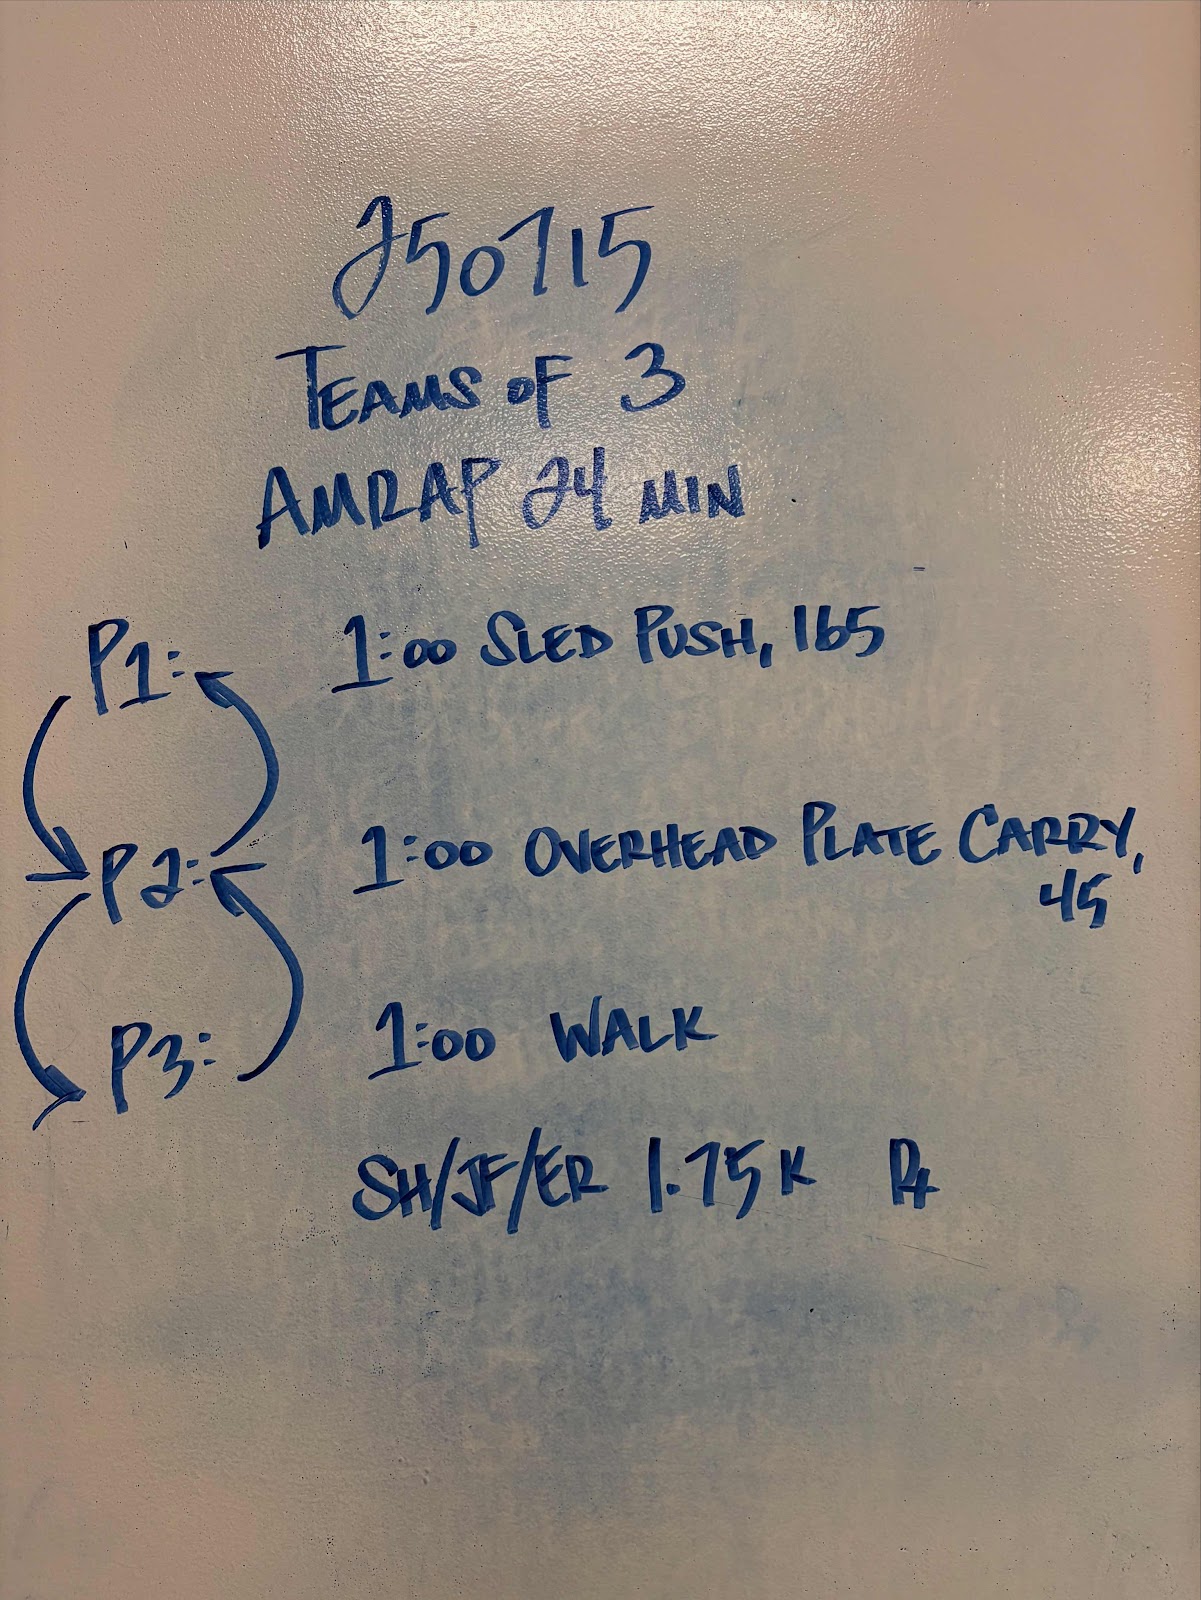 250715
TEAMS OF 3
AMRAP 24 MIN
P1: 1:00 SLED PUSH, 165
P2: 1:00 OVERHEAD PLATE CARRY,
45
P3: 1:00 WALK
SH/JF/ER 1.75K